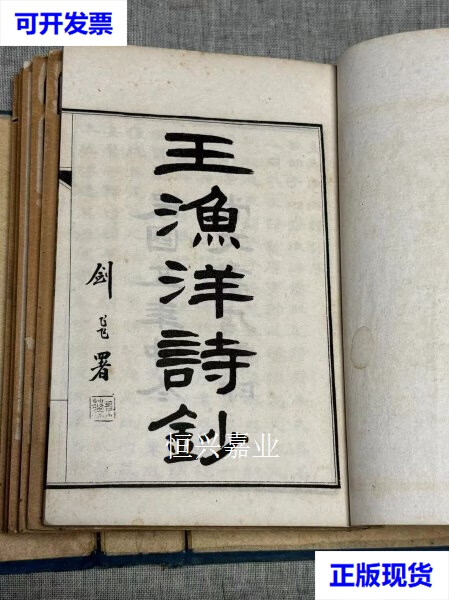 可开发票
王漁洋詩鈔
劍飞署
恒兴嘉业
正版现货